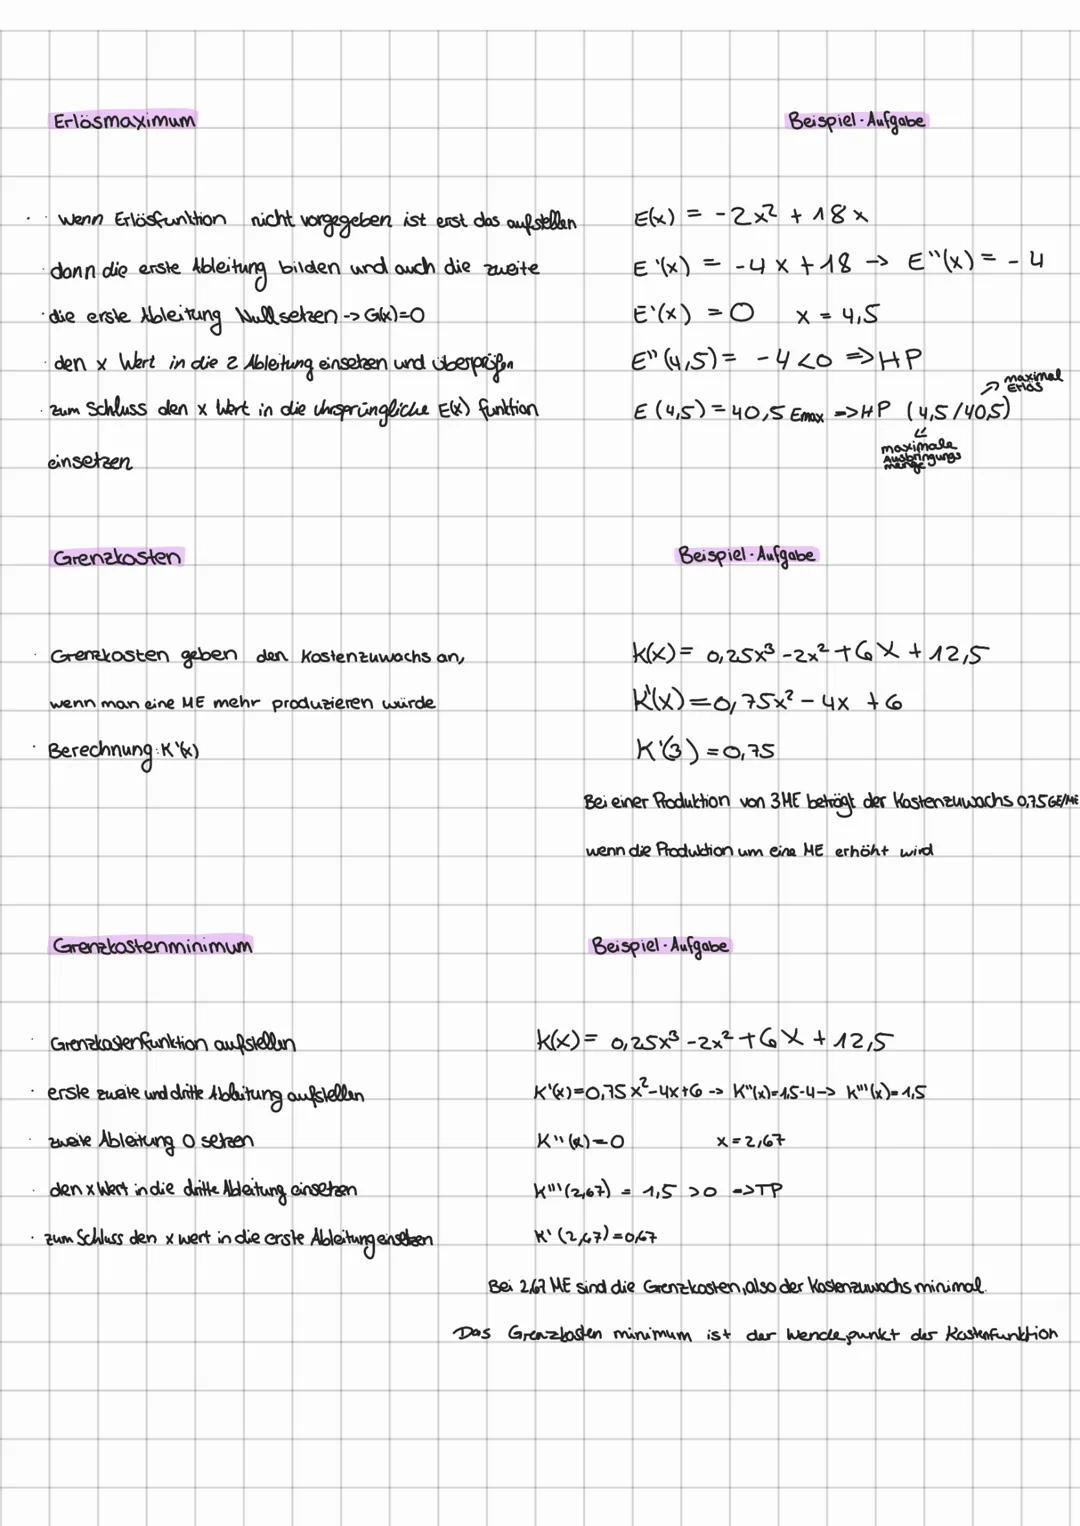 Erlösmaximum
Beispiel-Aufgabe
· wenn Erlösfunktion nicht vorgegeben ist erst das aufstellen
E(x) = -2x² + 18x
· dann die erste Ableitung bilden und auch die zweite
E'(x) = -4x + 18 -> E''(x) = -4
· die erste Ableitung Nullsetzen -> G(x)=0
E'(x) = 0 x = 4,5
· den x Wert in die 2 Ableitung einsetzen und überprüfen
E''(4,5) = -4 < 0 => HP
maximal
Erlös
· zum Schluss den x Wert in die Uhrsprüngliche E(x) funktion
E(4,5) = 40,5 Emax => HP (4,5/40,5)
einsetzen
maximale
Ausbringungs
menge
Grenzkosten
Beispiel-Aufgabe
· Grenzkosten geben den Kostenzuwachs an,
K(x) = 0,25x³ - 2x² + 6x + 12,5
wenn man eine ME mehr produzieren würde
K'(x) = 0,75x² - 4x + 6
· Berechnung: K'(x)
K'(3) = 0,75
Bei einer Produktion von 3ME beträgt der Kostenzuwachs 0,75GE/ME
wenn die Produktion um eine ME erhöht wird
Grenzkostenminimum
Beispiel-Aufgabe
· Grenzkostenfunktion aufstellen
K(x) = 0,25x³ - 2x² + 6x + 12,5
· erste zweite und dritte Ableitung aufstellen
K'(x)=0,75x²-4x+6 -> K''(x)=1,5-4 -> K'''(x)=1,5
· zweite Ableitung 0 setzen
K''(x)=0 x=2,67
· den x Wert in die dritte Ableitung einsetzen
K'''(2,67) = 1,5 >0 => TP
· zum Schluss den x wert in die erste Ableitung einsetzen
K'(2,67)=0,67
Bei 2,67 ME sind die Grenzkosten, also der Kostenzuwachs minimal.
Das Grenzkosten minimum ist der Wendepunkt der Kostenfunktion